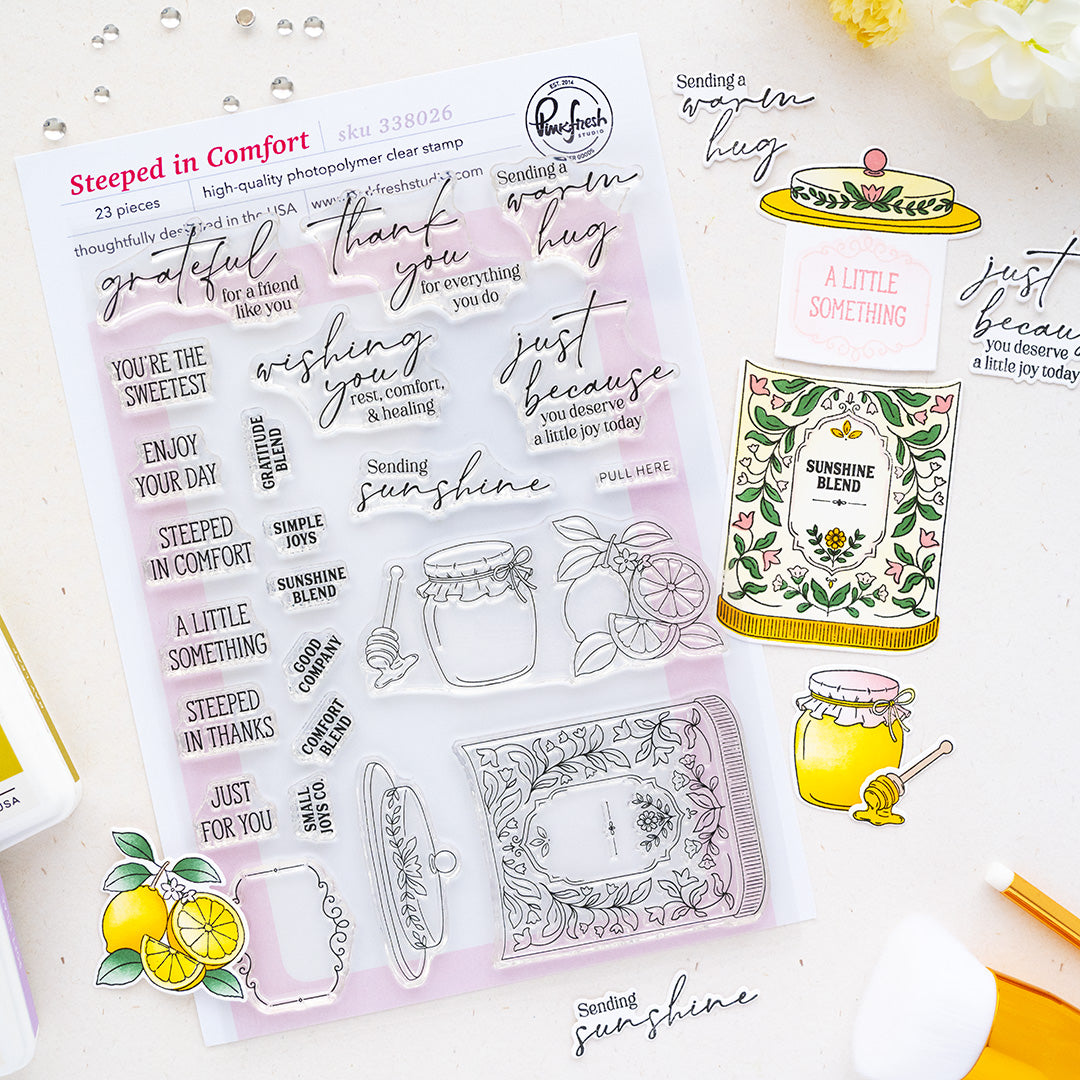 Steeped in Comfort
sku 338026
EST. 2014
Pinkfresh
STUDIO
23 pieces
high-quality photopolymer clear stamp
thoughtfully in the USA
grateful
for a friend
like you
thank
you
for everything
you do
Sending a
warm
hug
YOU'RE THE
SWEETEST
wishing
you
rest, comfort,
& healing
just
because
you deserve
a little joy today
ENJOY
YOUR DAY
GRATITUDE
BLEND
Sending
sunshine
PULL HERE
STEEPED
IN COMFORT
SIMPLE
JOYS
SUNSHINE
BLEND
A LITTLE
SOMETHING
GOOD
COMPANY
STEEPED
IN THANKS
COMFORT
BLEND
JUST
FOR YOU
SMALL
JOYS CO.
Sending a
warm
hug
A LITTLE
SOMETHING
just
becau
you deserve
a little joy today
SUNSHINE
BLEND
Sending
sunshine
USA